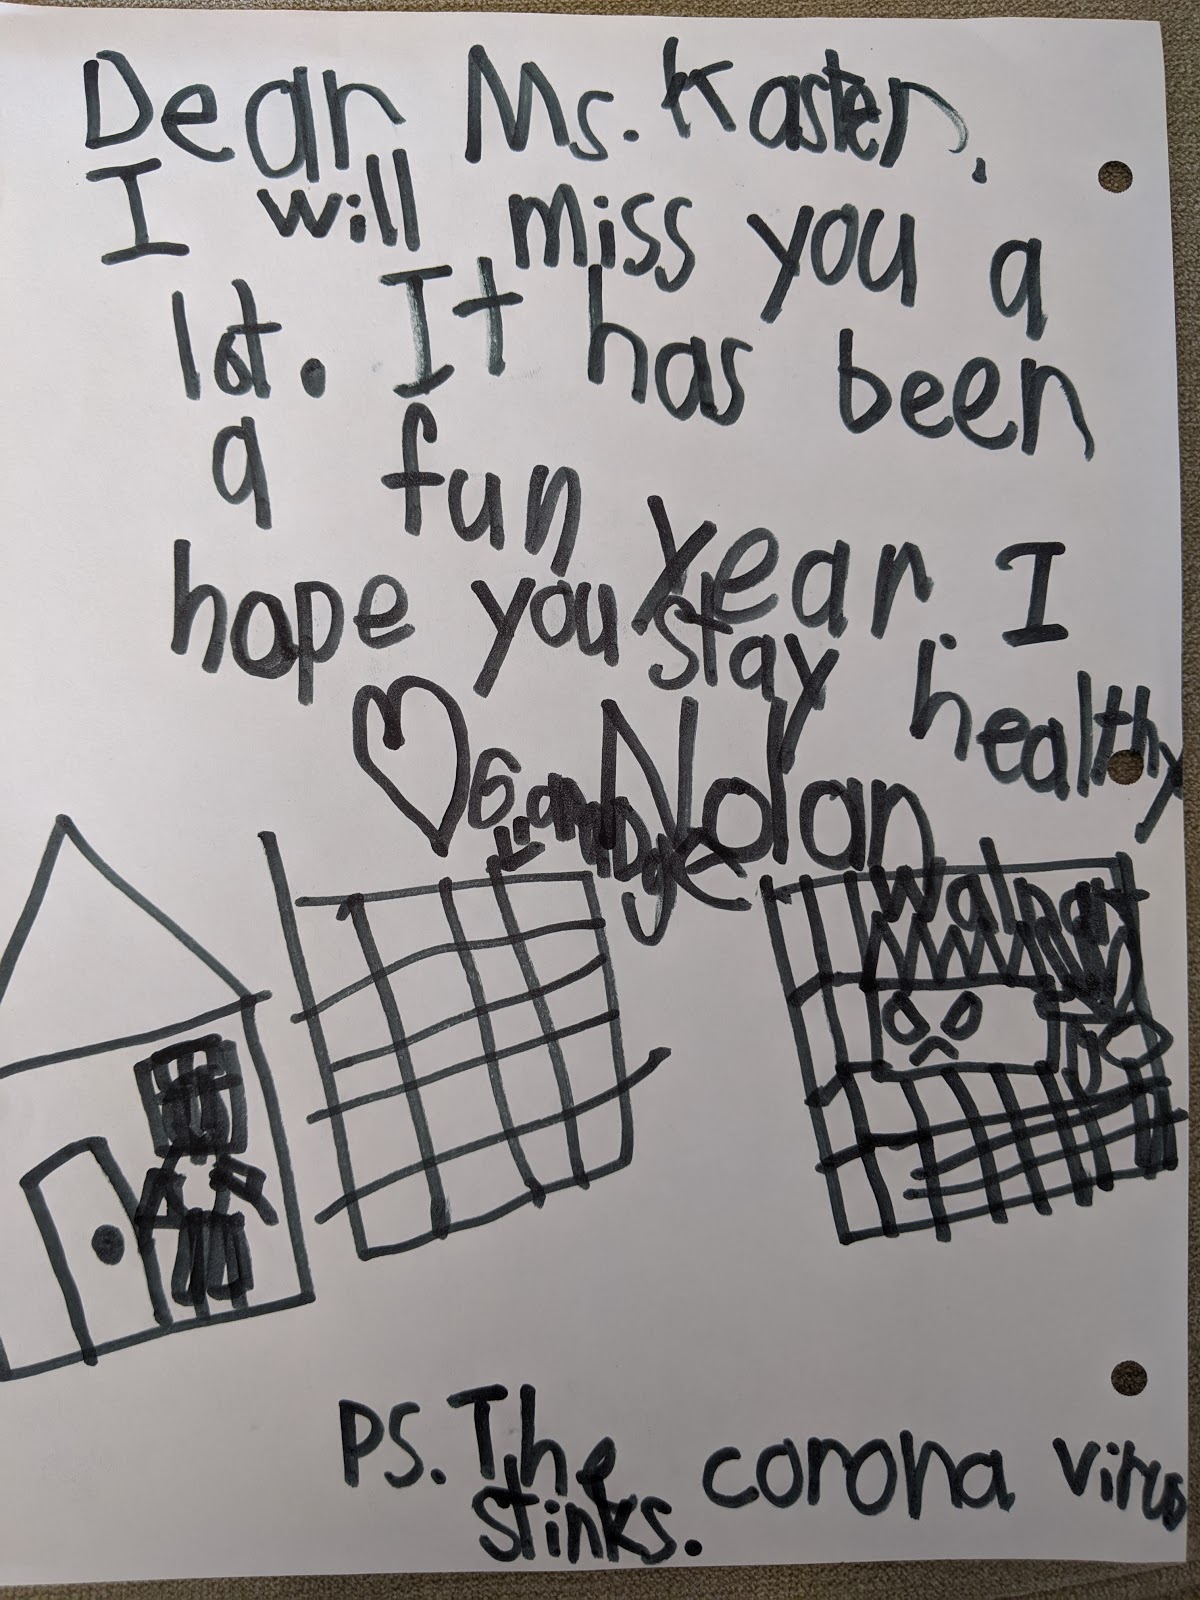 Dear Ms. Kaster,
I will miss you a
lot. It has been
a fun year. I
hope you stay healthy
Nolan
PS. The corona virus
stinks.